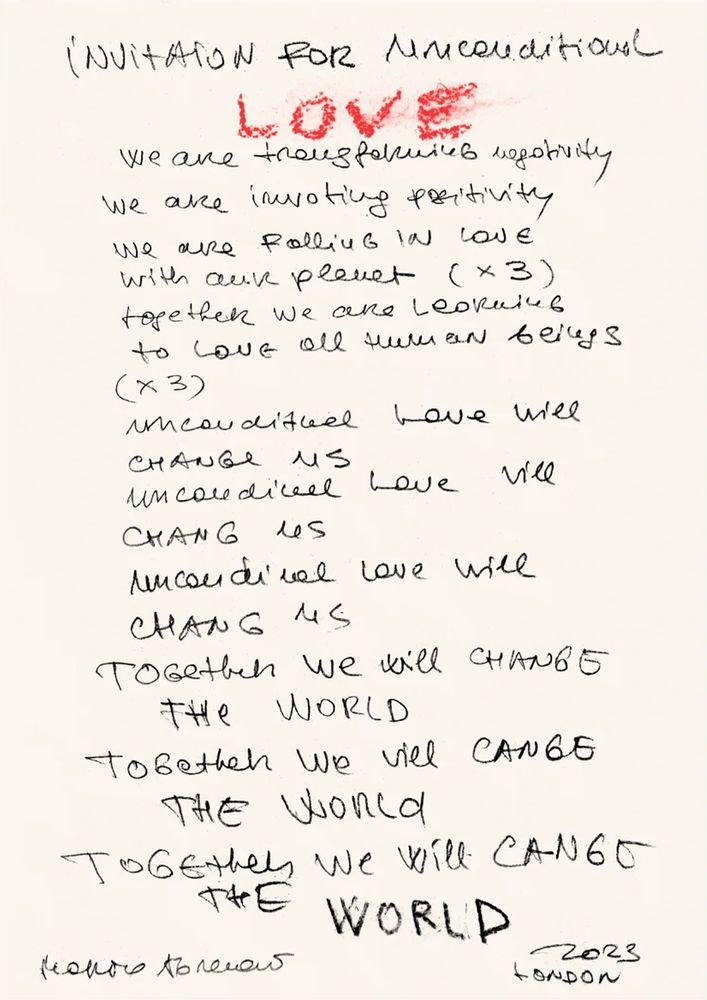 iNVitAiON FOR Unconditional
LOVE
We are transforming negativity
We are invoting positivity
We are FalliNG IN LOVE
with our planet (x3)
together we are LearniNG
to LOVE all HumaN beings
(x3)
unconditional Love will
CHANGE US
uncondinal Love vill
CHANG US
uncondinal Love will
CHANG US
TOGether We will CHANGE
THe WORLD
TOGether We vill CANGE
THE WORLd
TOGEther We Will CANGE
THE WORLD
2023
LONDON